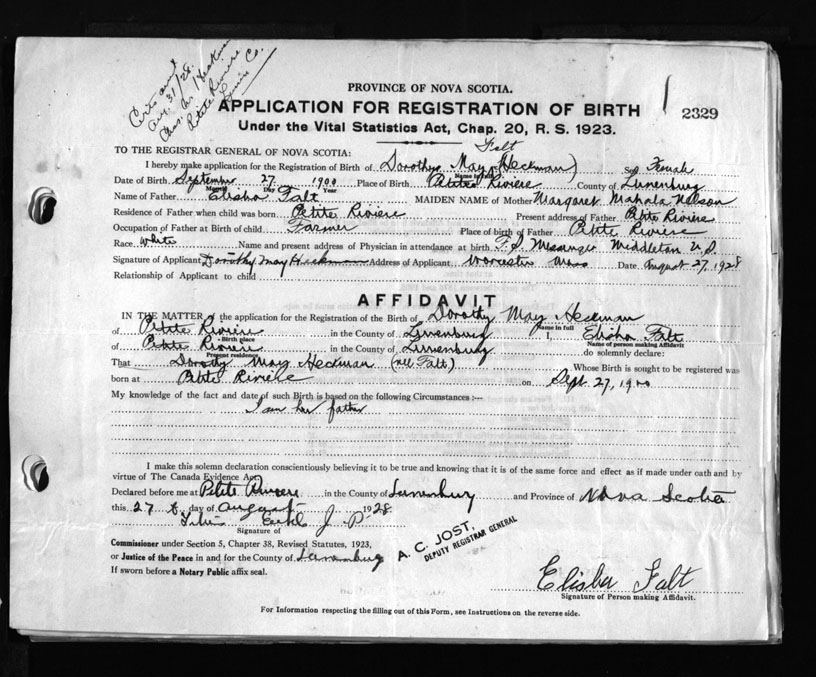 Certs sent
Aug. 31/28.
Chas. M. Heckman
Petite Riviere
Co.
PROVINCE OF NOVA SCOTIA.
APPLICATION FOR REGISTRATION OF BIRTH
2329
Under the Vital Statistics Act, Chap. 20, R. S. 1923.
Falt
TO THE REGISTRAR GENERAL OF NOVA SCOTIA:
I hereby make application for the Registration of Birth of Dorothy May (Heckman) Sex Female
Name in full
Date of Birth September 27 1900 Place of Birth Petite Riviere County of Lunenburg
Month Day Year
Name of Father Elisha Falt MAIDEN NAME of Mother Margaret Mahala Nelson
Residence of Father when child was born Petite Riviere Present address of Father Petite Riviere
Occupation of Father at Birth of child Farmer Place of birth of Father Petite Riviere
Race White Name and present address of Physician in attendance at birth Middleton N.S.
Signature of Applicant Dorothy May Heckman Address of Applicant Worcester Mass Date August 27, 1928
Relationship of Applicant to child
AFFIDAVIT
IN THE MATTER of the application for the Registration of the Birth of Dorothy May Heckman
Name in full
of Petite Riviere in the County of Lunenburg I, Elisha Falt
Birth place Name of person making Affidavit
of Petite Riviere in the County of Lunenburg do solemnly declare:
Present residence
That Dorothy May Heckman (nee Falt) Whose Birth is sought to be registered was
born at Petite Riviere on Sept. 27, 1900
My knowledge of the fact and date of such Birth is based on the following Circumstances :—
I am her father
I make this solemn declaration conscientiously believing it to be true and knowing that it is of the same force and effect as if made under oath and by
virtue of The Canada Evidence Act.
Declared before me at Petite Riviere in the County of Lunenburg and Province of Nova Scotia
this 27 day of August 1928
J P
Signature of
Commissioner under Section 5, Chapter 38, Revised Statutes, 1923,
or Justice of the Peace in and for the County of Lunenburg
If sworn before a Notary Public affix seal.
A. C. JOST,
DEPUTY REGISTRAR GENERAL
Elisha Falt
Signature of Person making Affidavit.
For Information respecting the filling out of this Form, see Instructions on the reverse side.